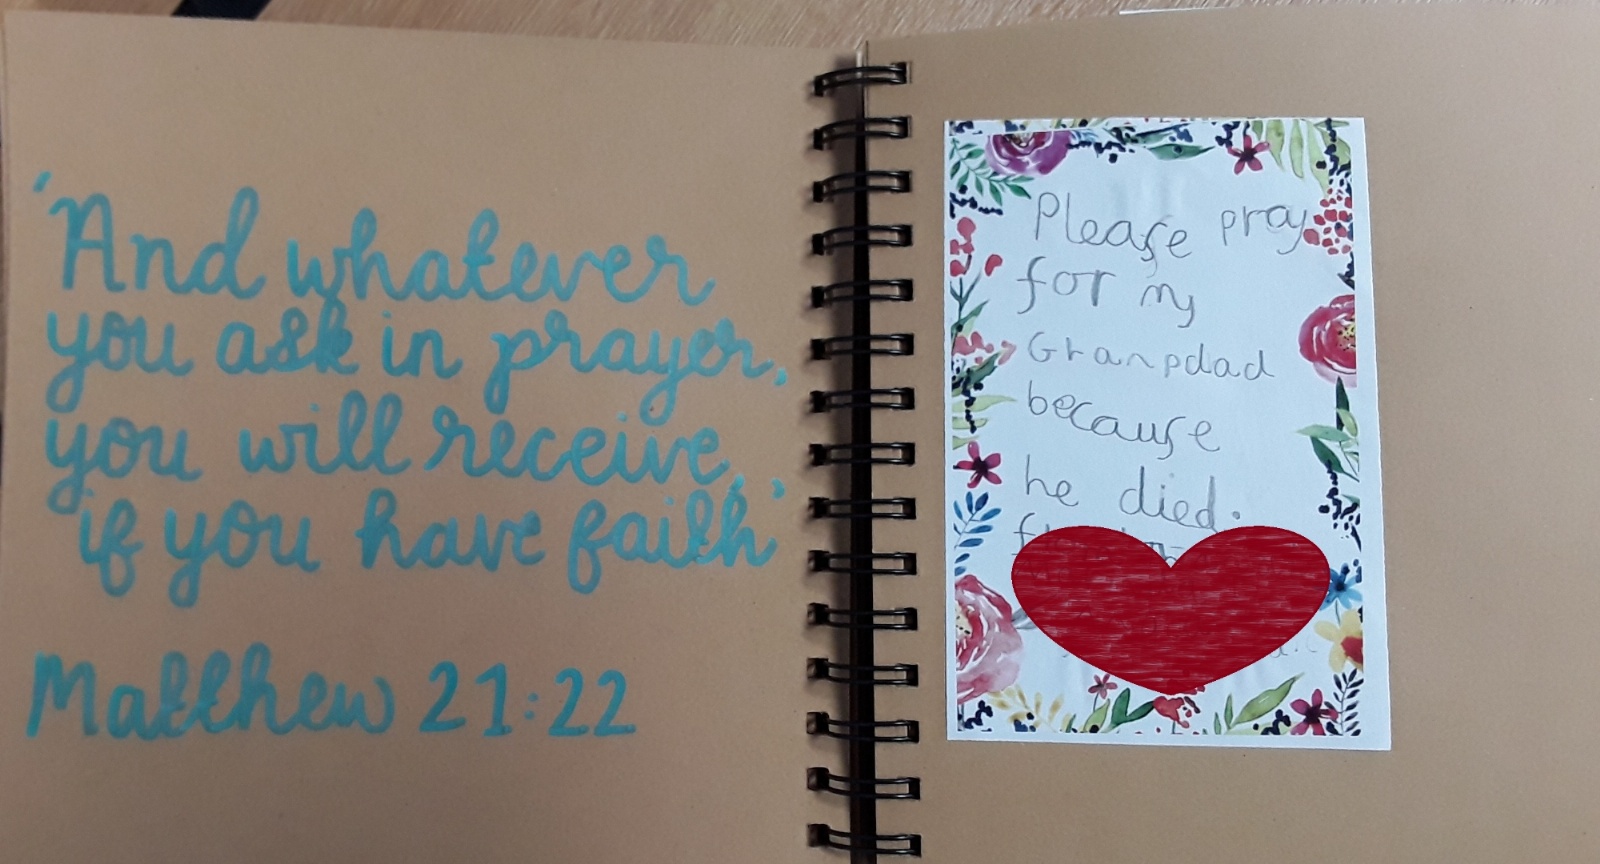 'And whatever
you ask in prayer,
you will receive,
if you have faith'
Matthew 21:22
Please pray
for my
Granpdad
because
he died.